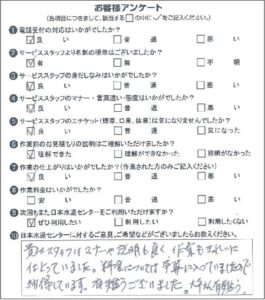 お客様アンケート
(各項目につきまして、該当する□の中に✓をご記入ください。)
1 電話受付の対応はいかがでしたか?
✓良い □普通 □悪い
2 サービススタッフより名刺の提示はございましたか?
✓有 □無 □不明
3 サービススタッフの身だしなみはいかがでしたか?
✓良い □普通 □悪い
4 サービススタッフのマナー・言葉遣い・態度はいかがでしたか?
✓良い □普通 □悪い
5 サービススタッフのエチケット(煙草、口臭、体臭)は気になりませんでしたか?
✓良い □普通 □気になった
6 作業前のお見積もりの説明はご理解いただけましたか?
✓理解できた □理解ができなかった □説明がなかった
7 作業の仕上がりはいかがでしたか?(作業された方のみご記入ください)
✓良い □普通 □悪い
8 作業料金はいかがでしたか?
□安い ✓普通 □高い
9 次回もまた日本水道センターをご利用いただけますか?
✓ぜひ利用したい □利用したい □利用したくない
10 日本水道センターに対するご意見、ご希望などがございましたらお教えください。
スタッフはマナーや説明も良く、作業もきれいに
仕上っていました。料金については
有難うございました。